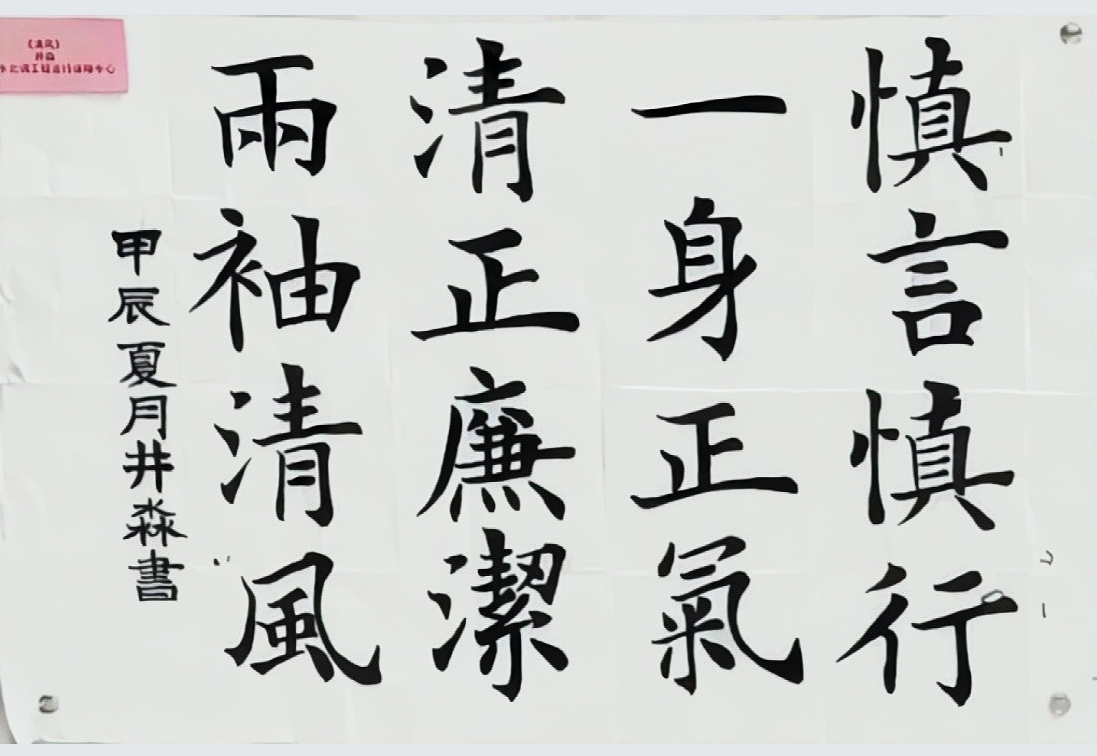 慎言慎行
一身正氣
清正廉潔
兩袖清風
甲辰夏月井淼書
《清风》
井淼